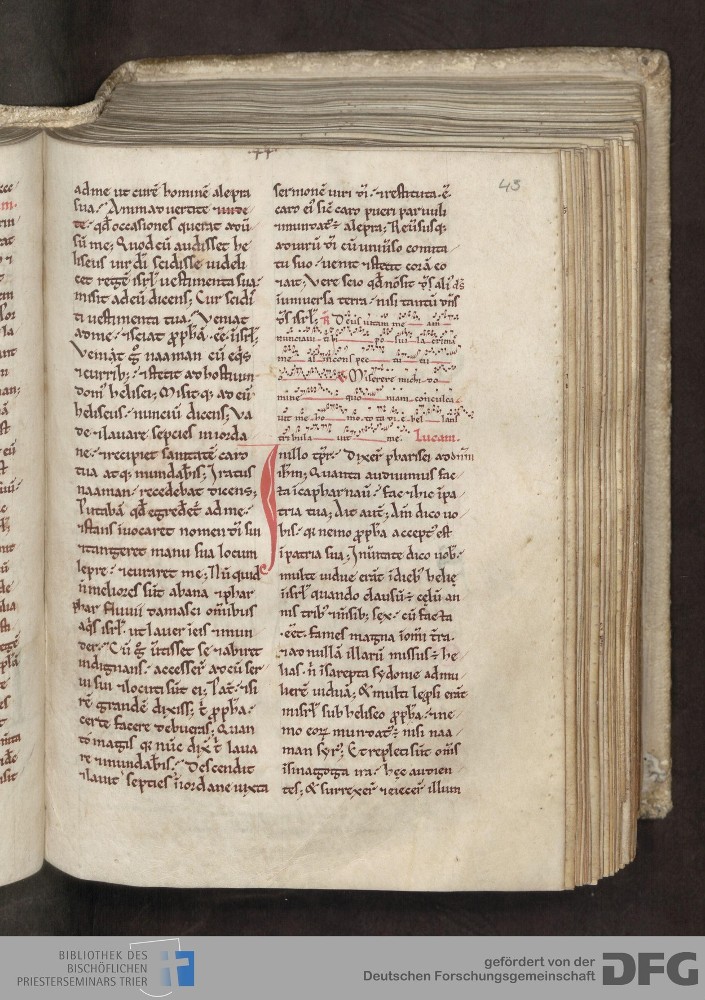 43
ad me ut curẽ hominẽ a lepra
sua. Animaduertite
te. qđ occasiones querat
sũ me; Quod cũ audisset he
liseus uir dĩ scidisse uideli
cet regẽ isrl̃ uestimenta sua.
misit ad eũ dicens; Cur scidis
ti uestimenta tua. Veniat
ad me. ⁊ sciat ꝓph̃ã eẽ ĩ isrl̃;
Veniat g̃ naaman cũ eq̃s
⁊ currib;. ⁊ stetit ad hostium
dom' helisei; Misitq; ad eũ
heliseus nunciũ dicens; Va
de ⁊ lauare septies in iorda
ne. ⁊ recipiet sanitatẽ caro
tua atq; mundab̃is; Iratus
naaman recedebat dicens;
Putabã qđ egredet̃ ad me.
⁊ stans ĩuocaret nomen dñi sui
⁊ tangeret manu sua locum
lepre. ⁊ curaret me; Nũ quid
ñ meliores sũt abana ⁊ phar
phar fluuii damasci omĩbus
aq̃s isrl̃. ut lauer ĩ eis ⁊ mun
der. Cũ g̃ ũtisset se ⁊ abiret
indignans. accesser̃ ad eũ ser
ui sui ⁊ locuti sũt ei; Pat̃. ⁊ si
rẽ grandẽ dixiss; t̃ ꝓph̃a.
certe facere debueras; Quan
to magis q; nũc dix̃ t̃ laua
re ⁊ mundab̃is. Descendit
⁊ lauit septies ĩ iordane iuxta
sermonẽ uiri dĩ. ⁊ restituta. ẽ.
caro ei' sic̃ caro pueri paruuli
⁊ mundat' ẽ a lepra; Reũsusq;
ad uirũ dĩ cũ uniũso comita
tu suo. uenit ⁊ stetit corã eo
⁊ ait; Vere scio qđ nõ sit d̃s ali' d̃s
ĩ uniuersa terra. nisi tantũ dñs
d̃s isrl̃; R̃ Deus uitam me am
nunciaui t̃ i po sui la crima
me as in cons pec tu tu
o. V Miserere michi do
mine quo niam conculca
uit me ho mo. to ta di e bel lans
tribula uit me. Lucam.
In illo tp̃r. Dixer̃ pharisei ad
ih̃m; Quanta audiuimus fac
ta ĩ capharnaũ. fac ⁊ hic ĩ pa
tria tua; Ait aut̃; Am̃ dico uo
bis. q; nemo ꝓph̃a accept' est
ĩ patria sua; In ũitate dico uob'.
multe uidue erãt ĩ dieb' helie
ĩ isrl̃ quando clausũ ẽ celũ an
nis trib' ⁊ m̃sib; sex. cũ facta
eẽt fames magna ĩ om̃i t̃ra.
⁊ ad nullã illarũ missus ẽ he
lias. ñ ĩ sarepta sydonie ad mu
lierẽ uiduã; & multi lep̃si erãt
in isrl̃ sub heliseo ꝓph̃a. ⁊ ne
mo eoꝝ mundat' ẽ nisi naa
man syr'; Et repleti sũt om̃s
ĩ sinagoga ira. hec audien
tes; & surrexer̃ ⁊ eiecer̃ illum
BIBLIOTHEK DES
BISCHÖFLICHEN
PRIESTERSEMINARS TRIER
gefördert von der
Deutschen Forschungsgemeinschaft
DFG